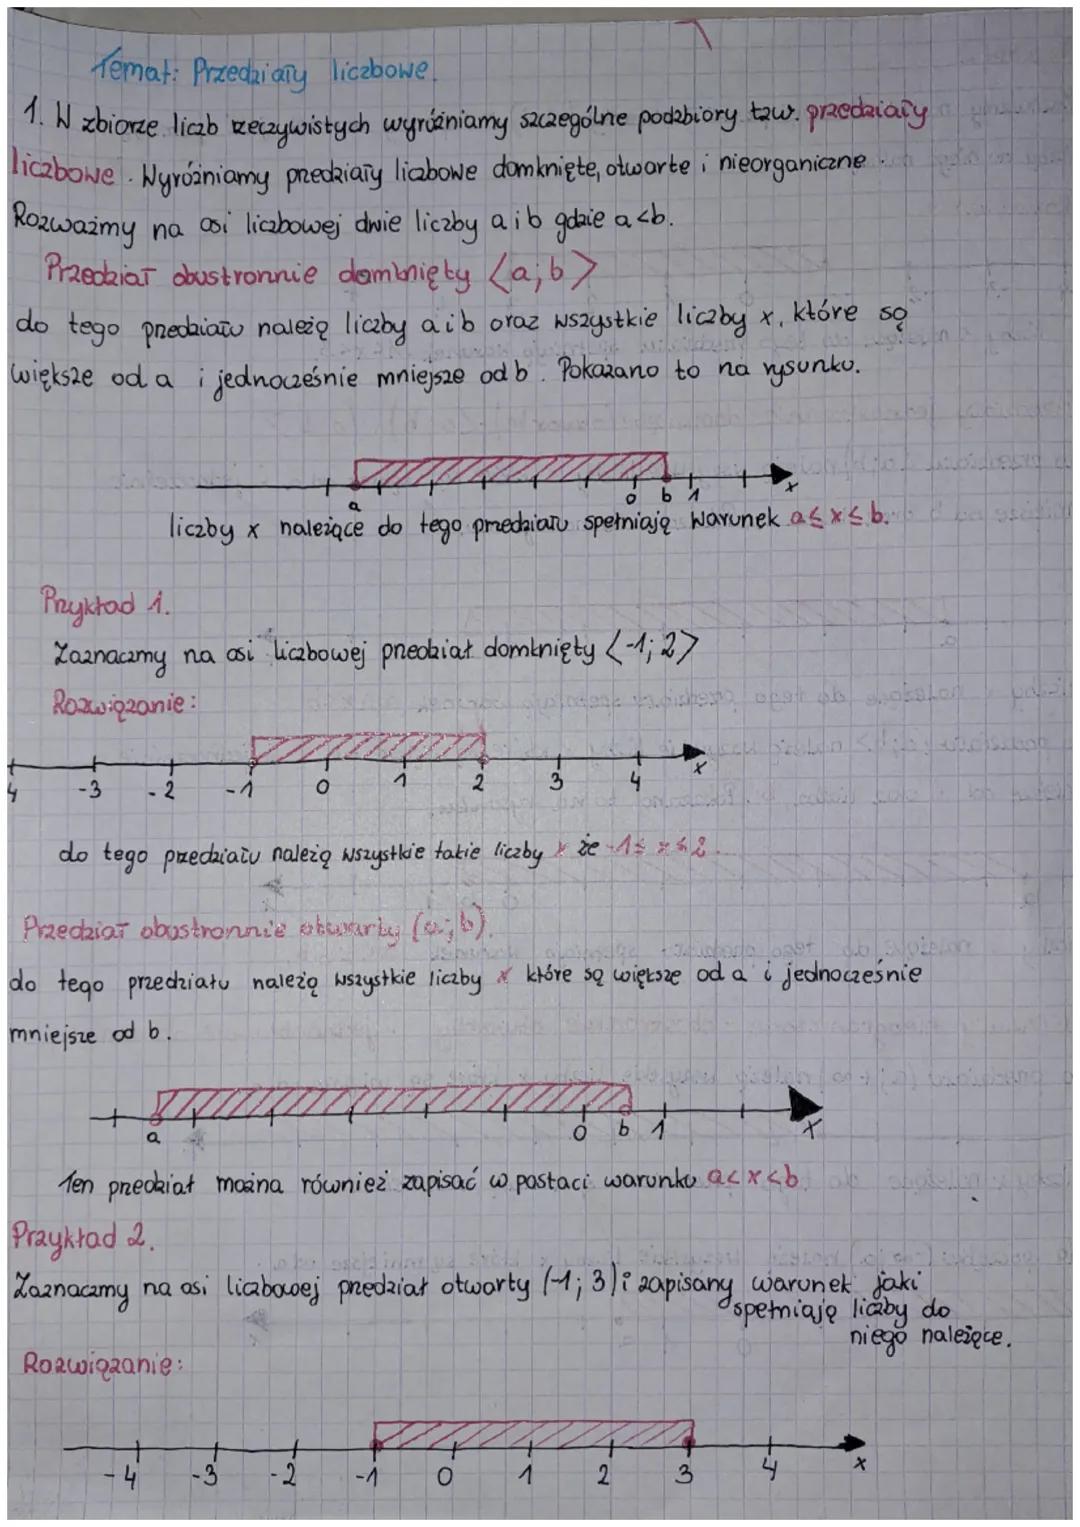 Temat: Przedziały liczbowe.
1. W zbiorze liczb rzeczywistych wyróżniamy szczególne podzbiory tzw. przedziały
liczbowe. Wyróżniamy przedziały liczbowe domknięte, otwarte i nieorganiczne.
Rozważmy na osi liczbowej dwie liczby a i b gdzie a<b.
Przedział obustronnie domknięty <a;b>
do tego przedziału należą liczby a i b oraz wszystkie liczby x, które są
większe od a i jednocześnie mniejsze od b. Pokazano to na rysunku.
a 0 b 1 x
liczby x należące do tego przedziału spełniają warunek a≤x≤b.
Przykład 1.
Zaznaczmy na osi liczbowej przedział domknięty <-1;2>
Rozwiązanie:
4 -3 -2 -1 0 1 2 3 4 x
do tego przedziału należą wszystkie takie liczby x że -1≤x≤2.
Przedział obustronnie otwarty (a;b).
do tego przedziału należą wszystkie liczby x które są większe od a i jednocześnie
mniejsze od b.
a 0 b 1 x
Ten przedział można również zapisać w postaci warunku a<x<b
Przykład 2.
Zaznaczmy na osi liczbowej przedział otwarty (-1;3) i zapisany warunek jaki
spełniają liczby do
niego należące.
Rozwiązanie:
-4 -3 -2 -1 0 1 2 3 4 x